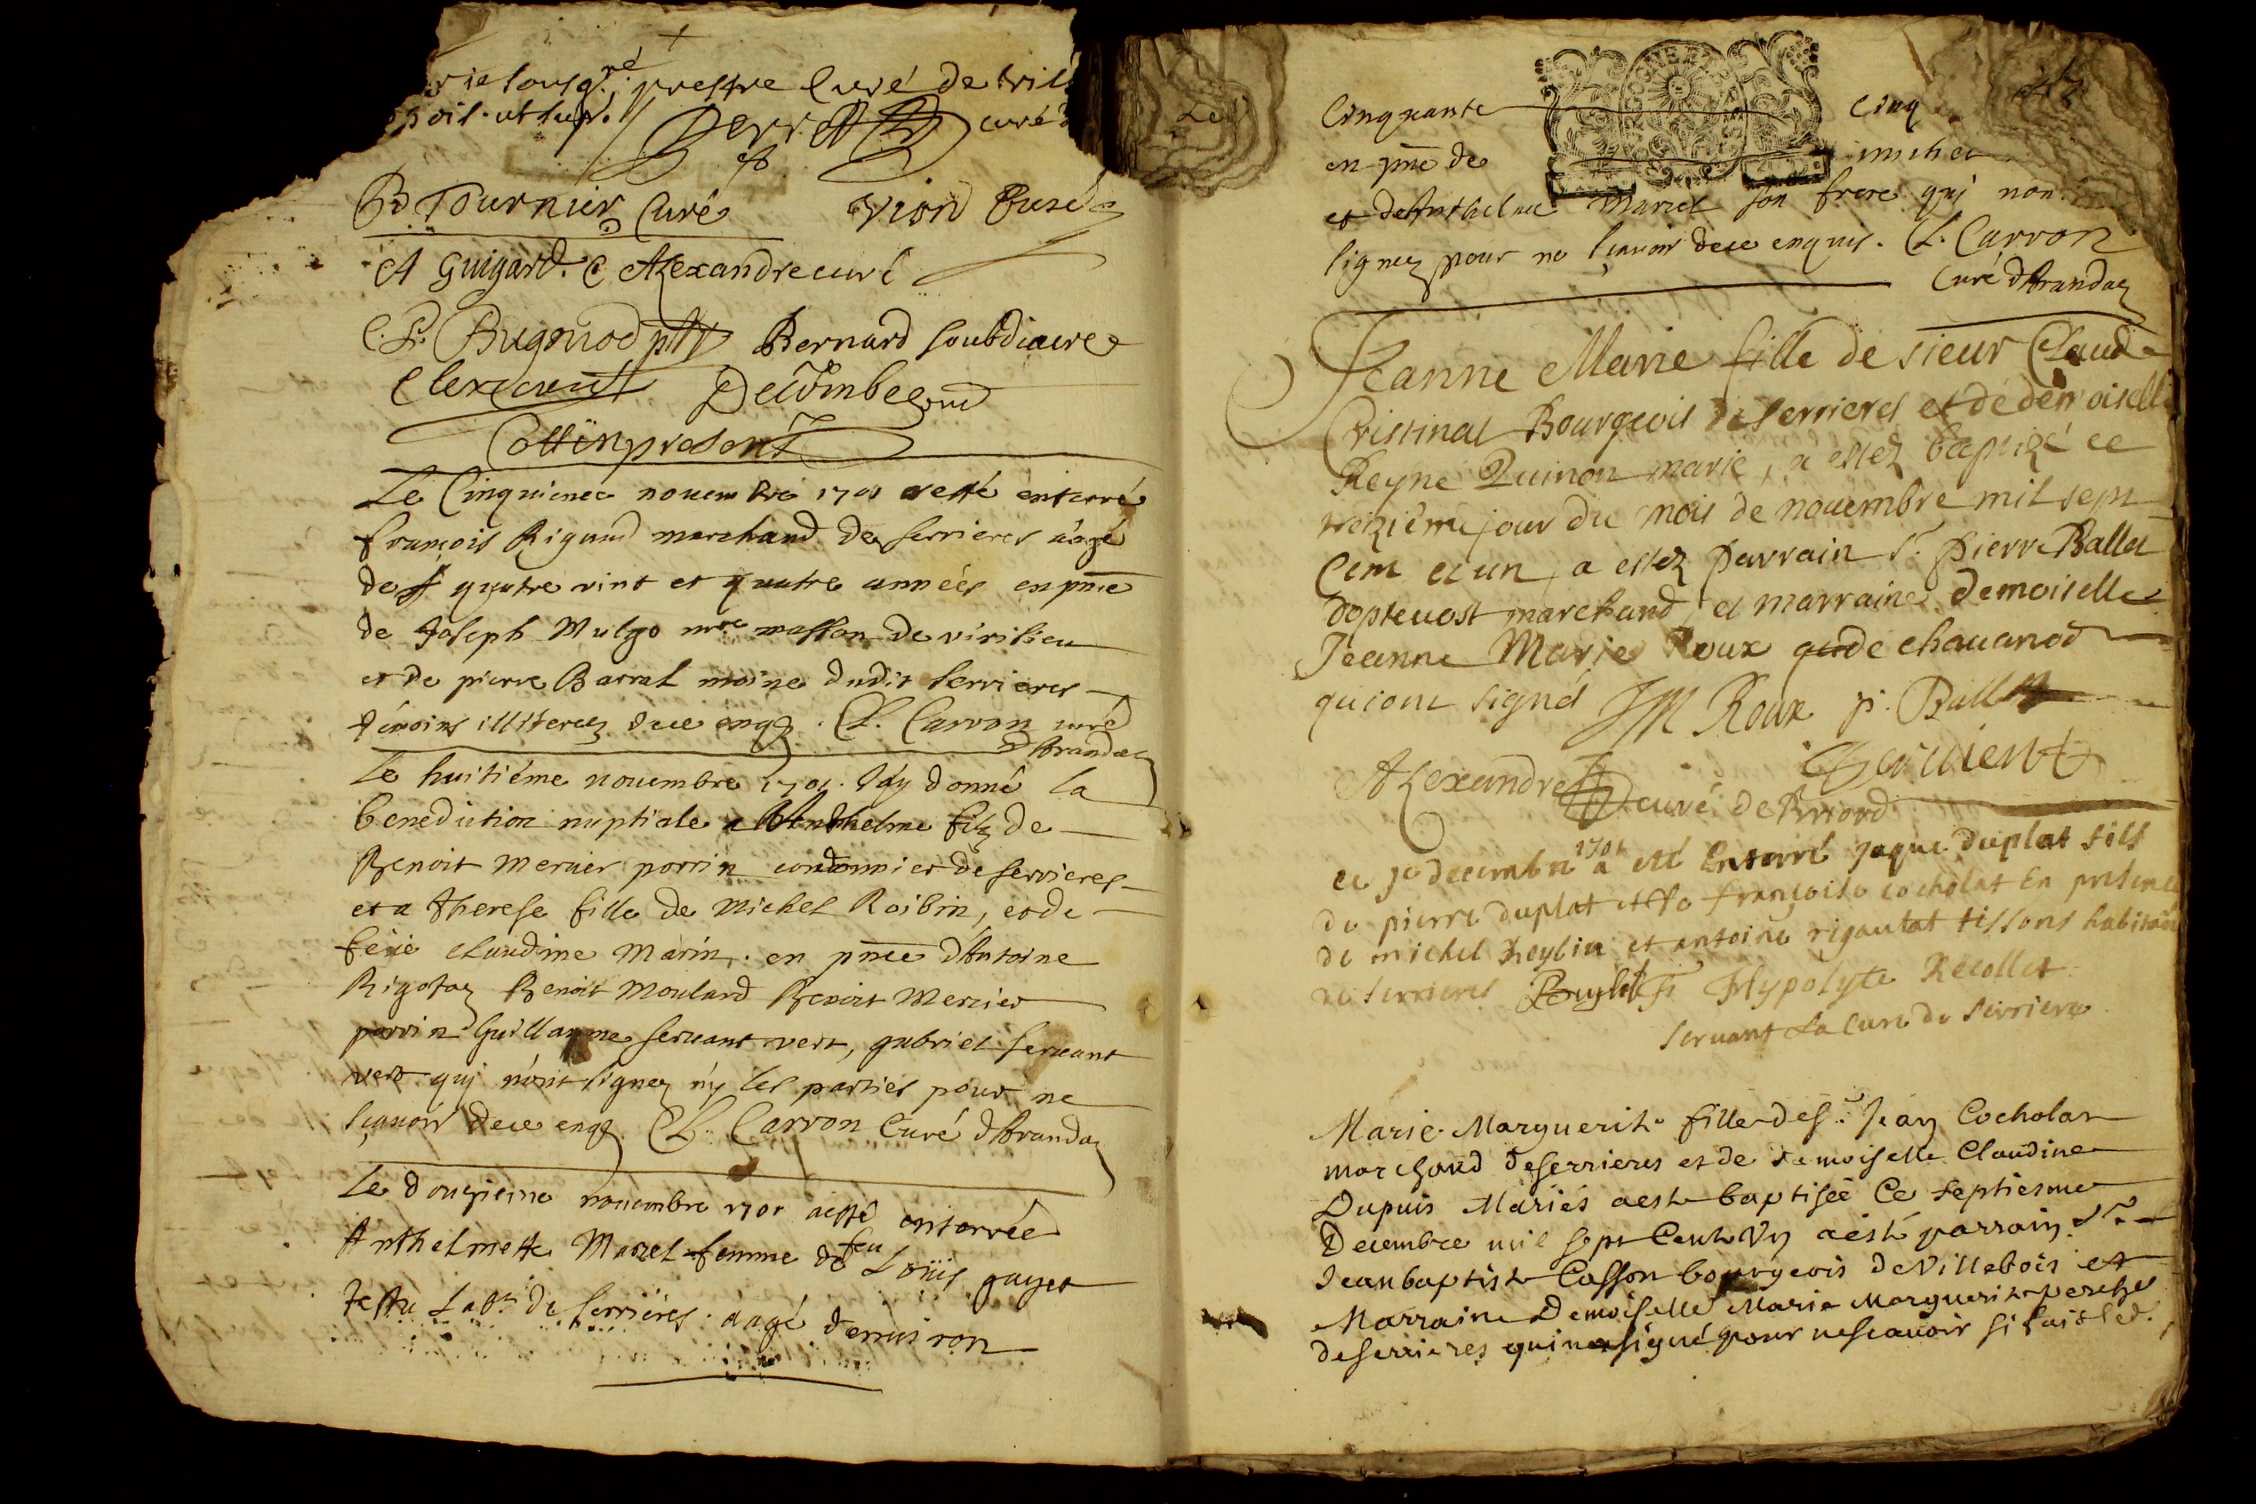 ie sousg.né prestre Curé de
soit. ut sup.
curé
Tournier Curé Vion Curé
A Guigard. C Alexandre curé
Bugniod ptre Bernard soubdiacre
Clerc
Cottin present
Le Cinquieme nouembre 1701 a esté enterré
francois Rigaud marchand de serrieres aâgé
de quatre vint et quatre années en pnce
de Joseph Mulgo mre masson de virilieu
et de pierre Barral moine dudit serrieres
témoins illiterez dece enqz. Cl. Carron curé
dArandaz
Le huitiéme nouembre 1701. J'ay donné la
benediction nuptiale a Anthelme filz de
Benoit Mercier perrin cordonnier de serrieres
et a Therese fille de Michel Roibin, et de
feüe claudine Marin,. en pnce dAntoine
Rigotaz Benoit Moulard Benoit Mercier
perrin Guillaume seruant vert, gabriel seruant
vert qui n'ont signez n'y les parties pour ne
sçauoir dece enqz Cl. Carron Curé dArandaz
Le douzieme nouembre 1701 a esté enterrée
Anthelmette Marcel femme de feu Loüis gayet
testu Labr. de serriéres. aagé denuiron
Cinquante Cinq
en pnce de michel
et deAnthelme Marcel son frere qui nont
signez pour ne sçauoir dece enquis. Cl. Carron
Curé dArandaz
Jeanne Marie fille de sieur Claude
Cristinal Bourgeois de serrieres et de demoiselle
Reyne Quinon marié, a estez baptizé ce
treiziéme jour du mois de nouembre mil sept
Cent et un, a estez parrain sr. pierre Ballet
dopteuost marchand, et marraine demoiselle
Jeanne Marie Roux de chauanod
qui ont signés JM Roux p. Ballet
Alexandre curé de Briord
ce 1e decembre 1701 a eté Enterré jaque duplat fils
de pierre duplat et de francoise cocholat En presence
de michel Reylin et antoine rigautat tissons habitans
de serrieres fr Hypolyte Recollet
seruant La Cure de serriere
Marie Marguerite fille de sr. Jean Cocholat
marchand deserrieres et de demoiselle Claudine
Dupuis Mariés a esté baptisée Ce septiesme
Decembre mil sept Cent Vn a esté parrain sr.
Jean baptiste Casson bourgeois de Villebois et
Marraine Demoiselle Marie Marguerite perche
deserrieres qui na signé pour nescauoir si fait led.